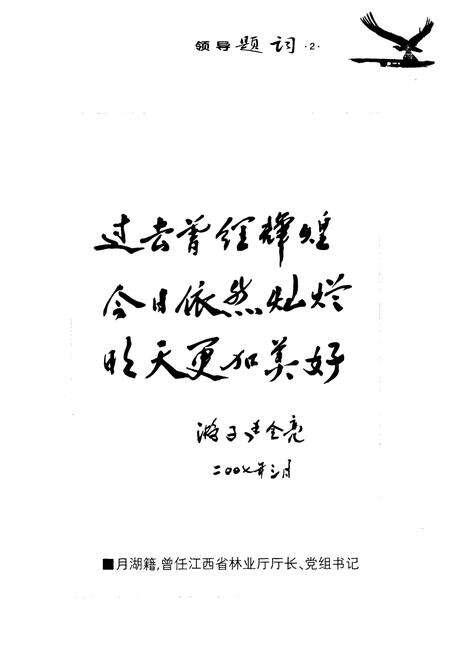 领导题词 ·2·
过去曾经辉煌
今日依然灿烂
明天更加美好
游子 全亮
二〇〇七年三月
■月湖籍,曾任江西省林业厅厅长、党组书记